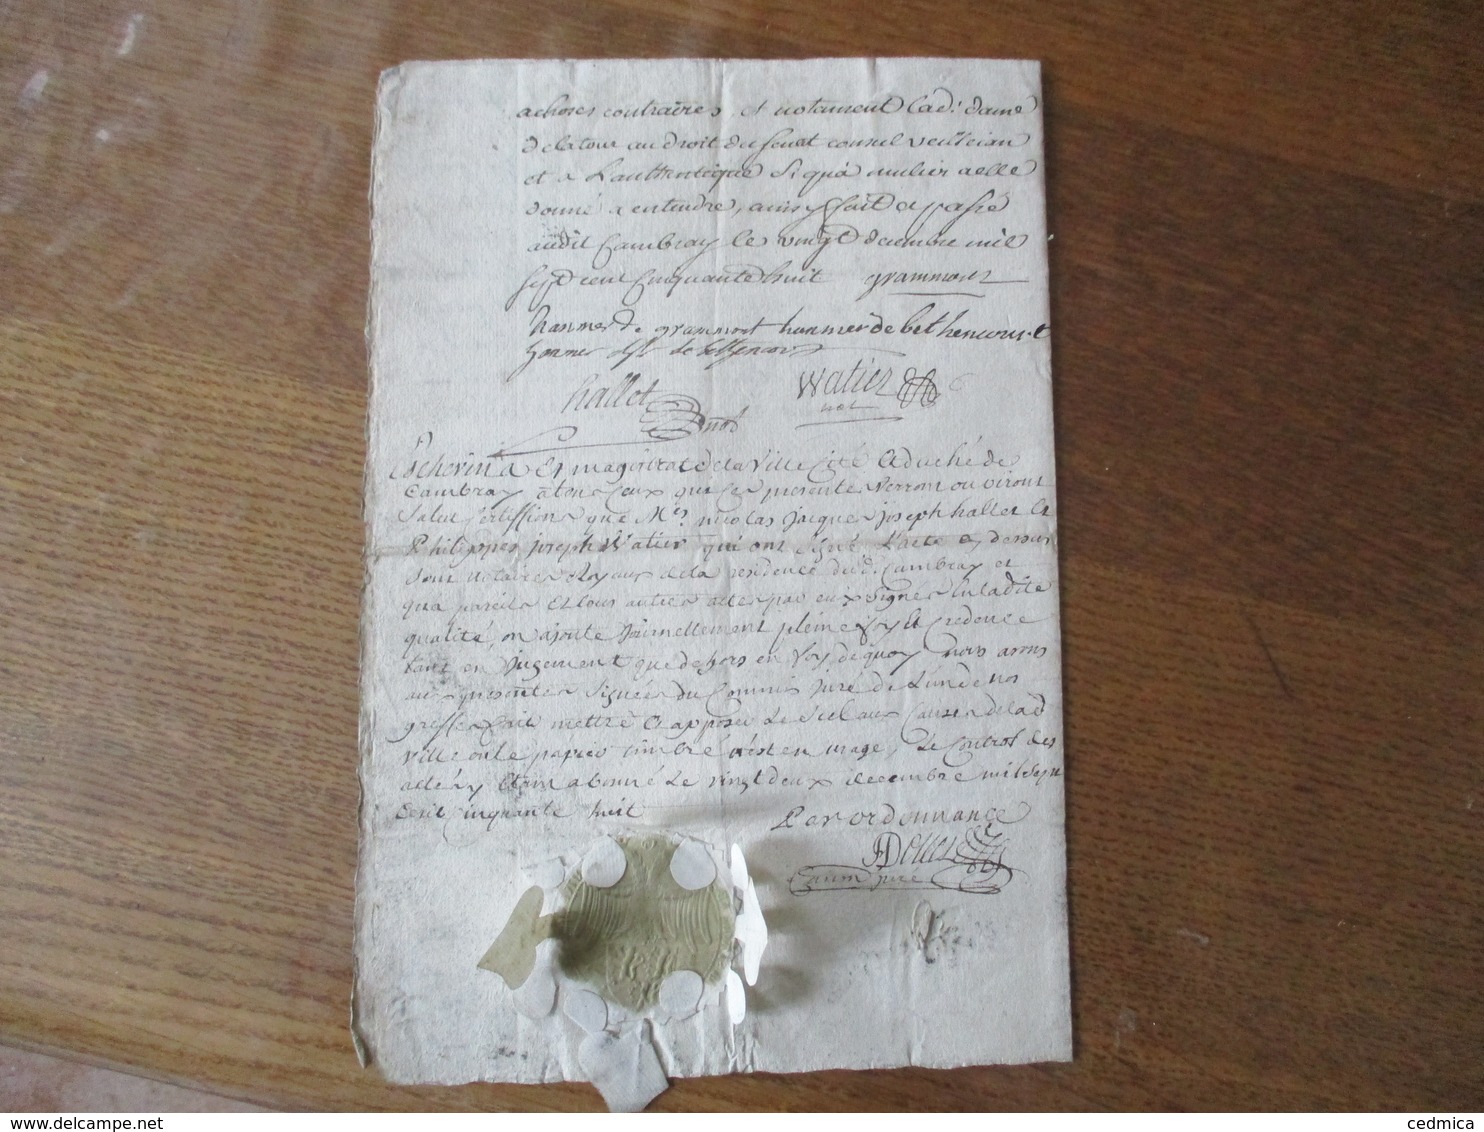 achoses contraires, et notament lad: dame
de la tour au droit du senat consul velleien
et a l'authentique si qua mulier a elle
donné a entendre, ainsy fait et passé
audit Cambray le vingt decembre mil
sept cent cinquante huit grammont
hanmer de grammont hanmer de bethencourt
hanmer de bethencourt
hallet
not
watier
not
Eschevins et magistrat de la ville cité et duché de
Cambray a tous ceux que ces presentes verront ou oiront
salut certiffions que Mes nicolas Jacque Joseph hallet et
Philippes joseph Watier qui ont signé l'acte cy dessus
sont notaires Royaux de la residence dud: Cambray et
qu'a pareils et tous autres actes par eux signés en ladite
qualité, on ajoute journellement pleine foy et credence
tant en jugement que dehors en foy de quoy nous avons
aux presentes signées du Commis juré de l'un de nos
greffes fait mettre et apposer le scel aux causes de lad
ville ou le papier timbré n'est en usage, le control des
actes y etant abonné le vingt deux decembre mil sept
cent cinquante huit
Par ordonnance
Comm juré
delcampe.net
cedmica